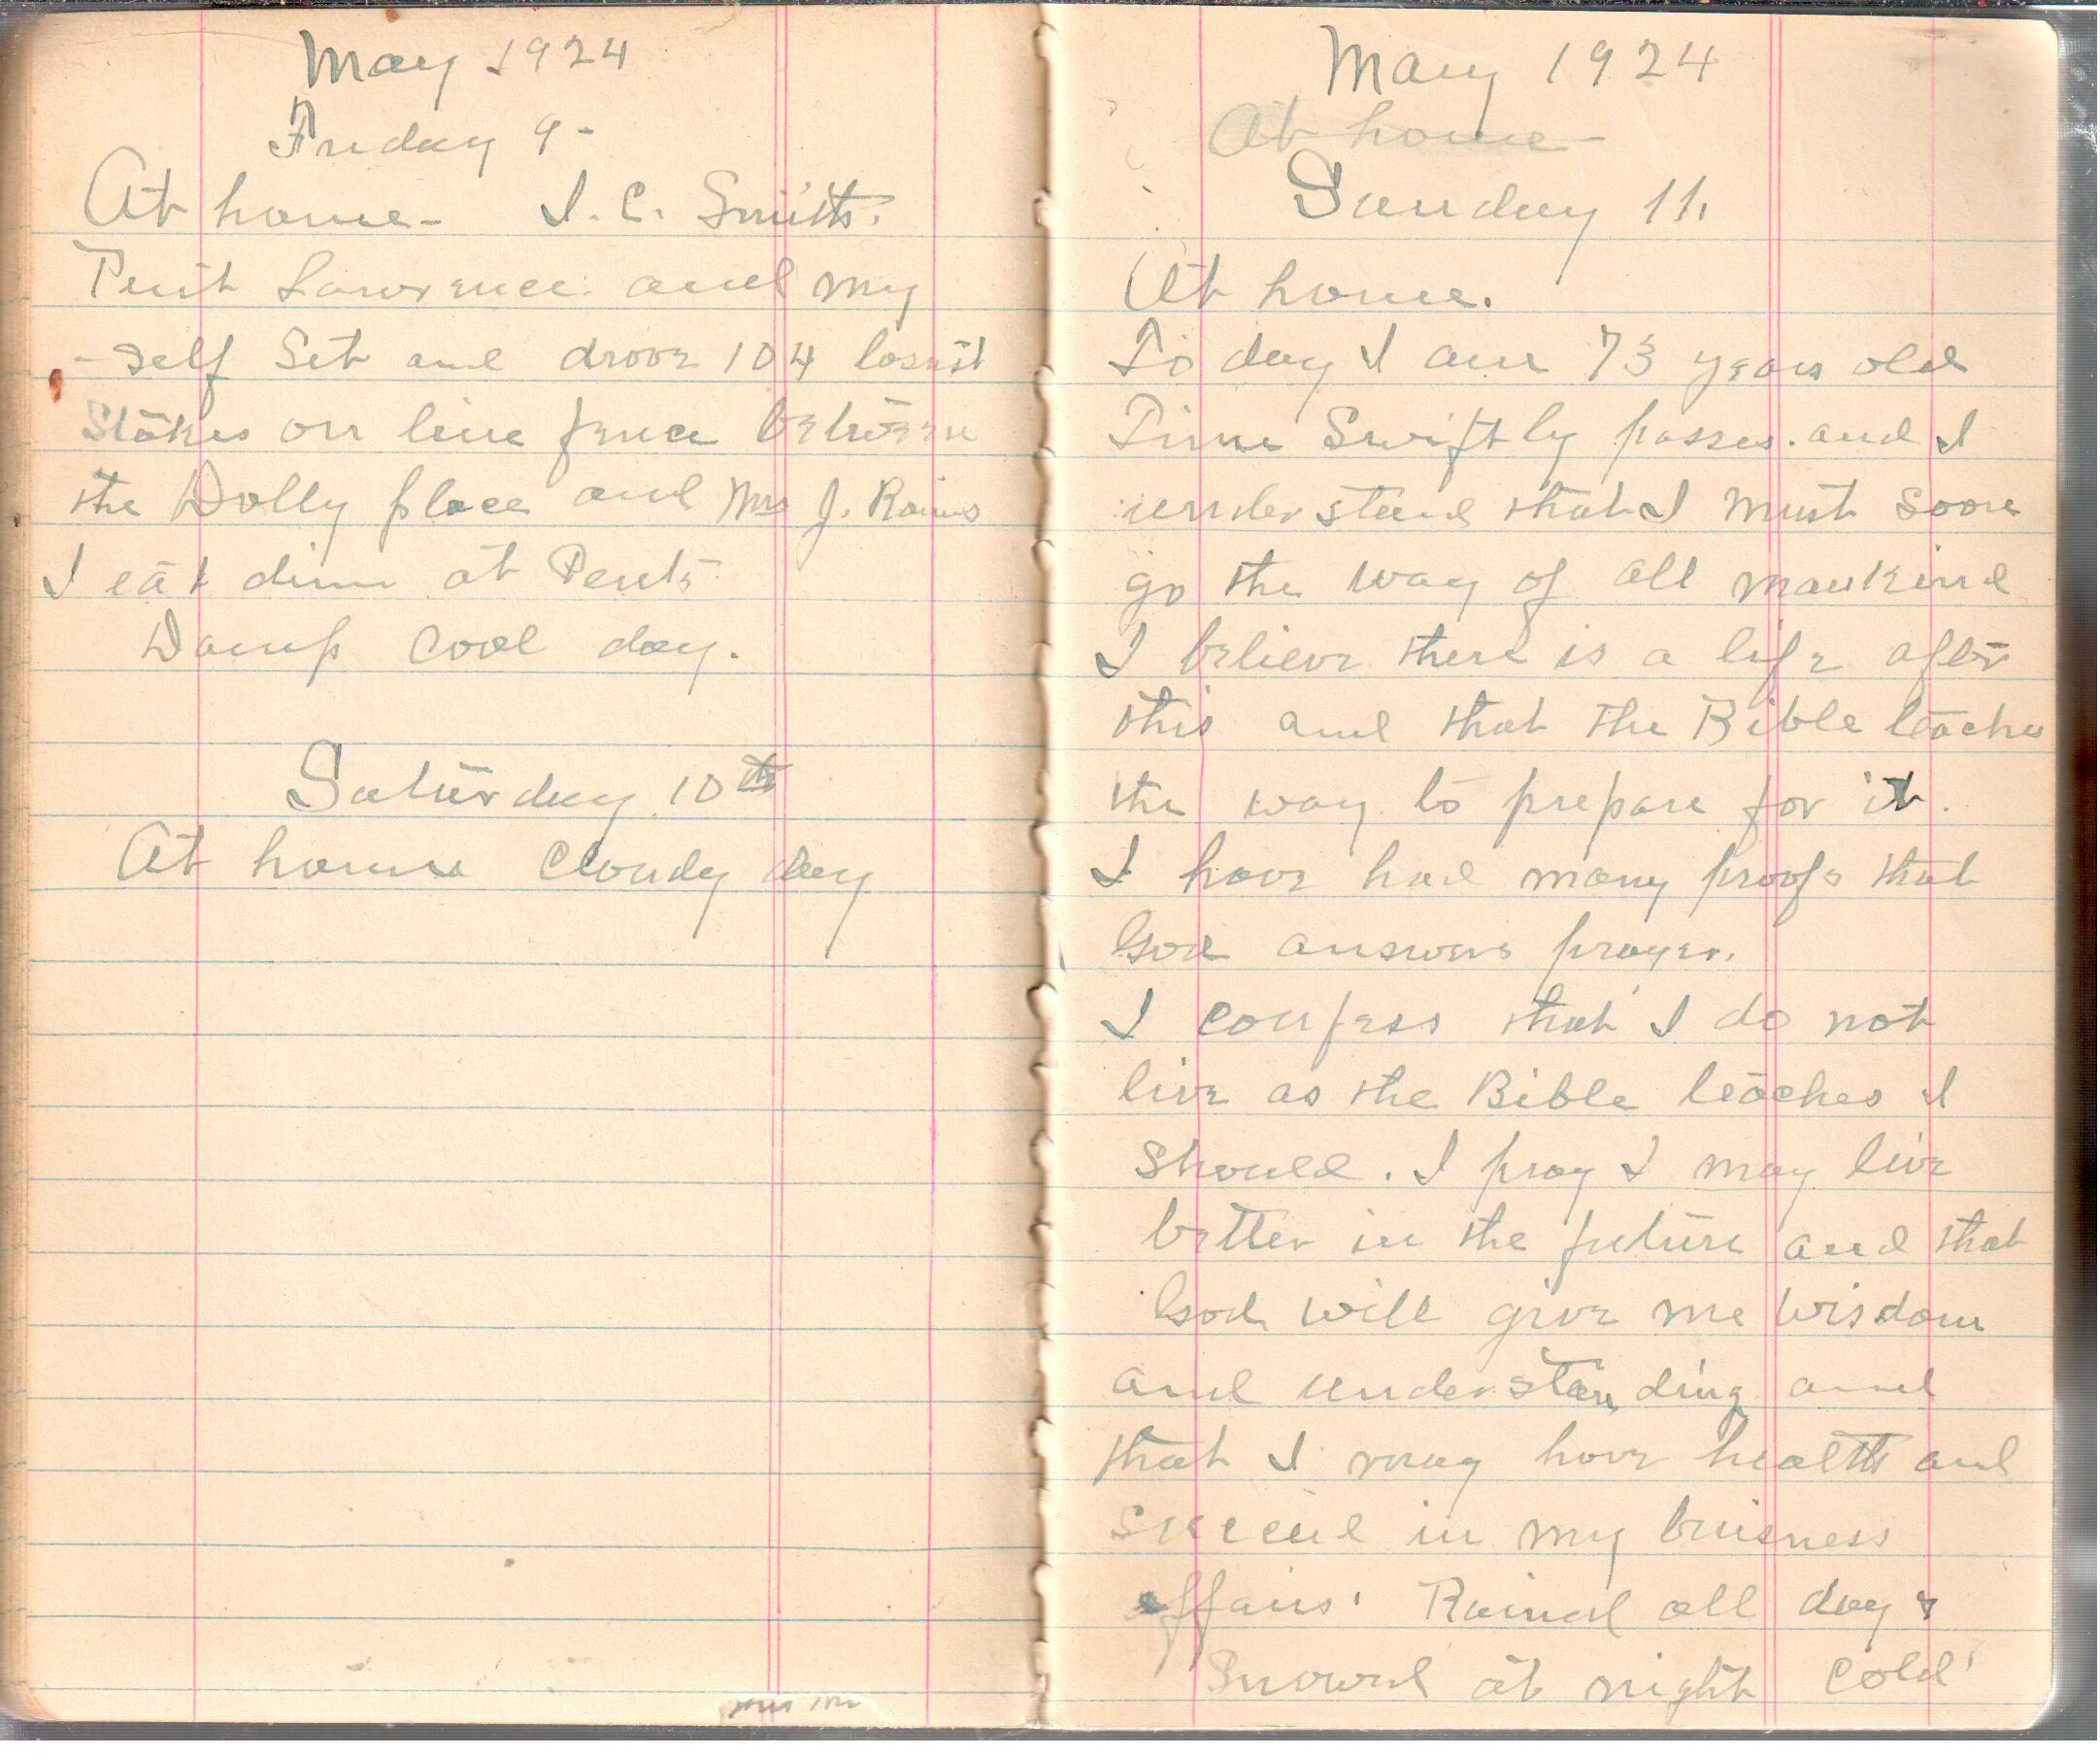 May 1924
Friday 9-
At home- I. C. Smith.
Pent Lawrence. and my
-self Set and drove 104 locust
Stakes on line fence between
the Dolly place and Mrs J. Rains
I eat dinn at Pents
Damp Cool day.
Saturday 10th
At home Cloudy day
May 1924
At home-
Sunday 11.
At home.
To day I am 73 years old
Time Swiftly passes. and I
understand that I must soon
go the way of all mankind
I believe there is a life after
this and that the Bible teaches
the way to prepare for it.
I have had many proofs that
God answers prayer.
I confess that I do not
live as the Bible teaches I
should. I pray I may live
better in the future and that
God will give me wisdom
and understanding and
that I may have health and
succeed in my buisness
affairs. Rained all day &
Snowed at night Cold